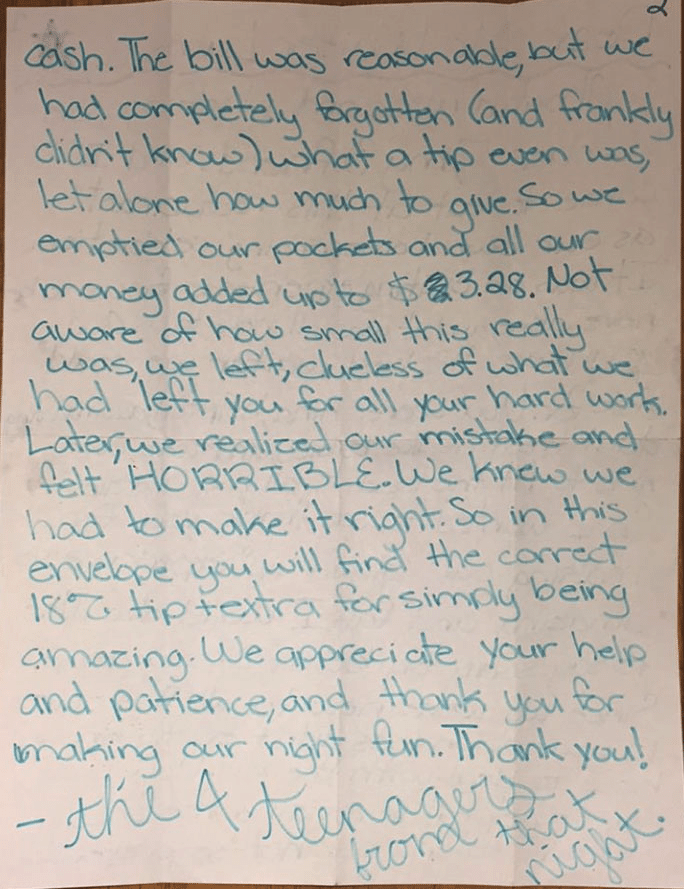 2
cash. The bill was reasonable, but we
had completely forgotten (and frankly
didn't know) what a tip even was,
let alone how much to give. So we
emptied our pockets and all our
money added up to $3.28. Not
aware of how small this really
was, we left, clueless of what we
had left you for all your hard work.
Later, we realized our mistake and
felt HORRIBLE. We knew we
had to make it right. So in this
envelope you will find the correct
18% tip + extra for simply being
amazing. We appreciate your help
and patience, and thank you for
making our night fun. Thank you!
- the 4 teenagers
from that
night.